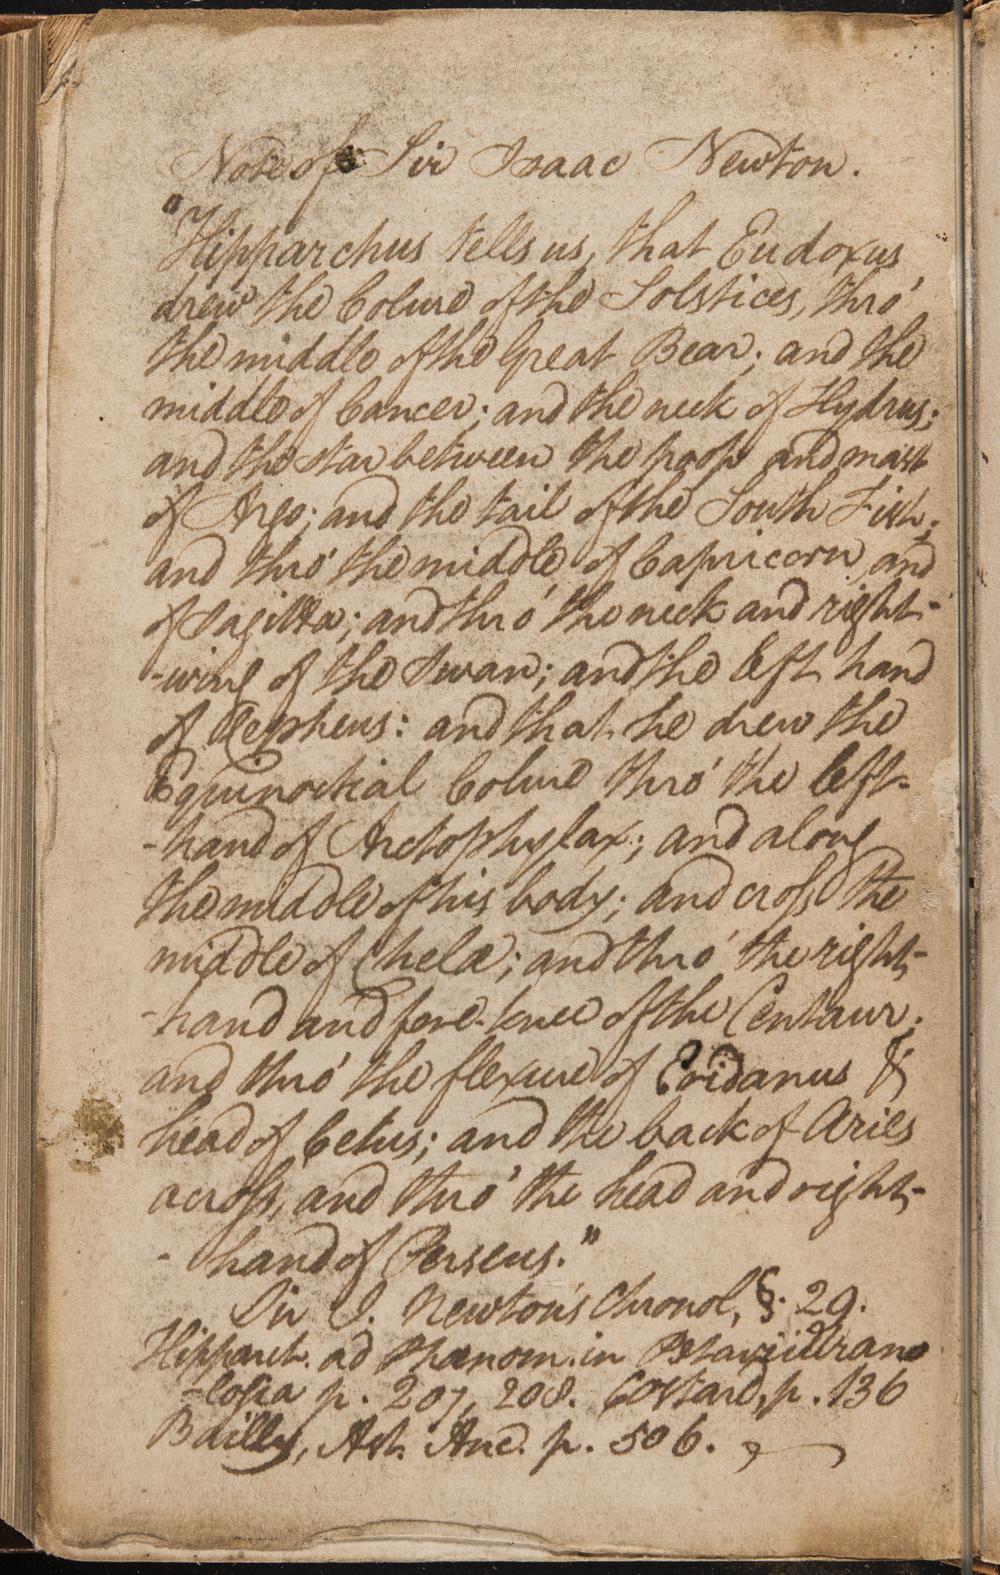 Note of Sir Isaac Newton.
"Hipparchus tells us, that Eudoxus
drew the Colure of the Solstices, thro'
the middle of the Great Bear; and the
middle of Cancer; and the neck of Hydrus;
and the star between the poop and mast
of Argo; and the tail of the South Fish;
and thro' the middle of Capricorn, and
of Sagitta; and thro' the neck and right-
-wing of the Swan; and the left hand
of Cepheus: and that he drew the
Equinoctial Colure thro' the left-
-hand of Arctophylax; and along
the middle of his body; and cross the
middle of Chelæ; and thro' the right-
-hand and fore-knee of the Centaur;
and thro' the flexure of Eridanus &
head of Cetus; and the back of Aries
across, and thro' the head and right-
- hand of Perseus."
Sir I. Newton's Chronol, §. 29.
Hipparch. ad Phænom. in Petavii Urano
-logia p. 207, 208. Costard, p. 136
Bailly, Ast. Anc. p. 506.